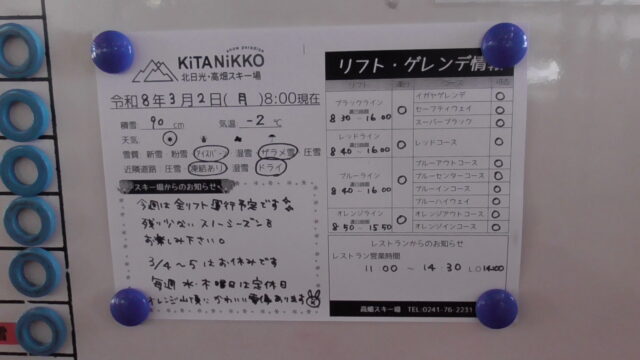 snow paradise
KiTANiKKO
北日光・高畑スキー場
令和8年3月2日(月)8:00現在
積雪 90cm 気温 -2℃
天気
雪質 新雪 粉雪 アイスバーン 湿雪 ザラメ雪 圧雪
近隣道路 圧雪 凍結あり 湿雪 ドライ
スキー場からのお知らせ
今週は全リフト運行予定です
残り少ないスノーシーズンを
お楽しみ下さい。
3/4~5はお休みです
毎週 水・木曜日は定休日
リフト・ゲレンデ情報
リフト コース
ブラックライン
8:30~16:00
イガヤゲレンデ
セーフティウェイ
スーパーブラック
レッドライン
8:40~16:00
レッドコース
ブルーライン
8:40~16:00
ブルーアウトコース
ブルーセンターコース
ブルーインコース
ブルーハイウェイ
オレンジライン
8:50~15:50
オレンジアウトコース
オレンジインコース
レストランからのお知らせ
レストラン営業時間
11:00~14:30 LO14:00
高畑スキー場 TEL 0241-76-2231